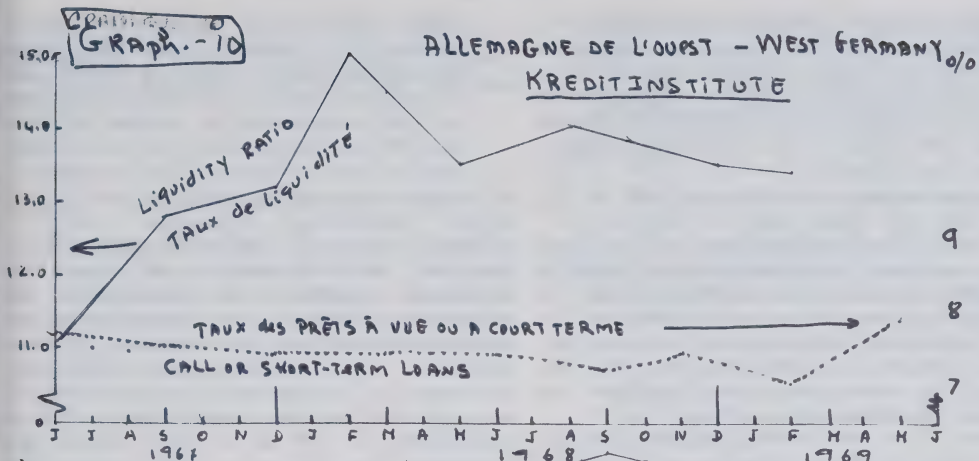 GRaph. - 10
ALLEMAGNE DE L'OUEST - WEST GERMANY
o/o
KREDITINSTITUTE
15.0
14.0
13.0
12.0
11.0
0
LIQUIDITY RATIO
TAUX de LIQUIDITÉ
9
8
7
TAUX des PRÊTS À VUE OU A COURT TERME
CALL OR SHORT-TERM LOANS
J J A S O N D J F M A M J J A S O N D J F M A M J
1968
1969